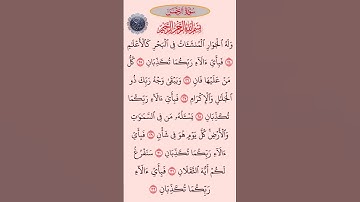 سُورَةُ الرَّحْمَٰن
بِسْمِ اللَّهِ الرَّحْمَٰنِ الرَّحِيمِ
وَلَهُ الْجَوَارِ الْمُنشَـَٔاتُ فِي الْبَحْرِ كَالْأَعْلَٰمِ
فَبِأَيِّ ءَالَآءِ رَبِّكُمَا تُكَذِّبَانِ ۝ كُلُّ
مَنْ عَلَيْهَا فَانٍ ۝ وَيَبْقَىٰ وَجْهُ رَبِّكَ ذُو
الْجَلَٰلِ وَالْإِكْرَامِ ۝ فَبِأَيِّ ءَالَآءِ رَبِّكُمَا
تُكَذِّبَانِ ۝ يَسْـَٔلُهُۥ مَن فِي السَّمَٰوَٰتِ
وَالْأَرْضِ كُلَّ يَوْمٍ هُوَ فِي شَأْنٍ ۝ فَبِأَيِّ
ءَالَآءِ رَبِّكُمَا تُكَذِّبَانِ ۝ سَنَفْرُغُ
لَكُمْ أَيُّهَ الثَّقَلَانِ ۝ فَبِأَيِّ ءَالَآءِ
رَبِّكُمَا تُكَذِّبَانِ ۝